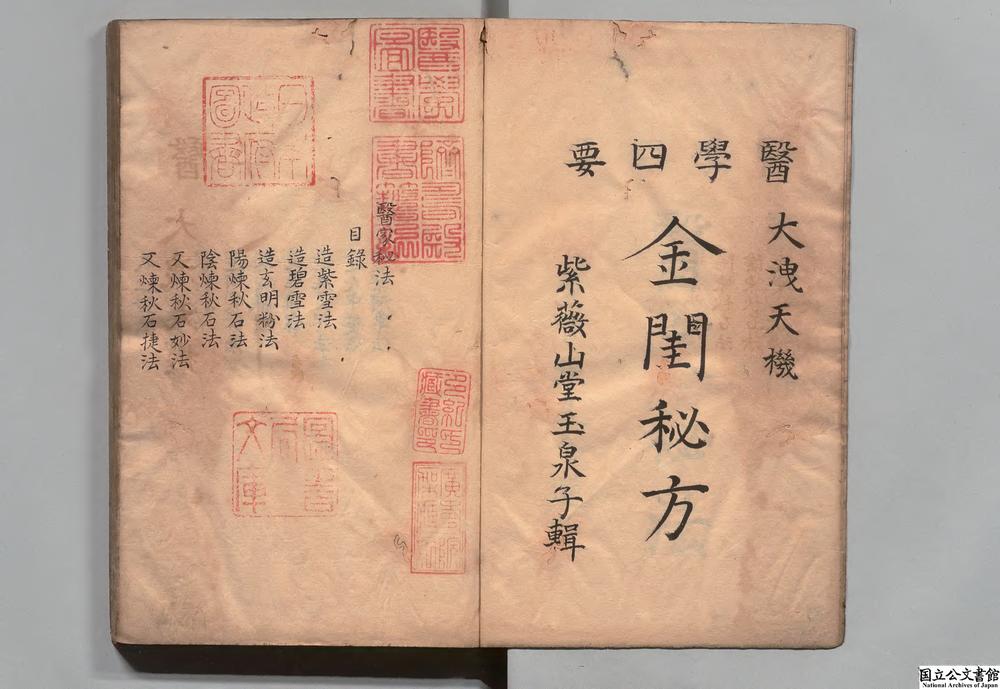 醫學四要
大洩天機
金閨秘方
紫薇山堂玉泉子輯
醫學圖書
醫家秘法
目錄
造紫雪法
造碧雪法
造玄明粉法
陽煉秋石法
陰煉秋石法
又煉秋石妙法
又煉秋石捷法
圖書局文庫
国立公文書館
National Archives of Japan